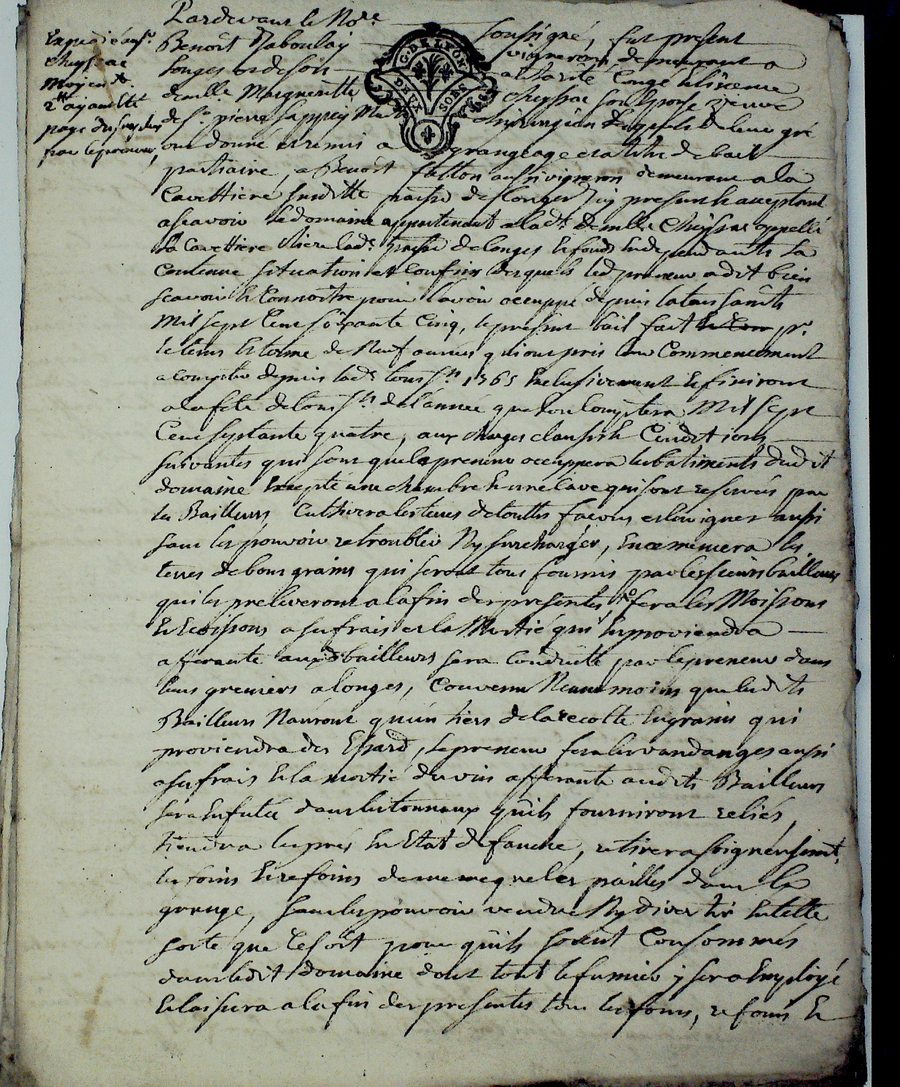 Pardevant le No.re soussigné, fut present
Benoît Jaboulay vigneron, demeurant a
Longes et de son
G. DE LYON
DEUX SOLS
demlle Margueritte Cheyssac son Epouse Veuve
de Sr. pierre
ont donné et remis a grangeage et a titre de bail
partiaire, a Benoît fallon aussi vigneron demeurant a la
Cavettiere susditte parse de Longes Icy present & acceptant
ascavoir le domaine appartenant a lade. Demlle Cheyssac appellé
la Cavettiere scitue lade. parse de longes les fonds en dependants la
Contenue situation et Confins desquels led. preneur a dit bien
scavoir & Connoitre pour l'avoir occuppé depuis la toussaints
Mil sept Cent soixante Cinq, le present bail fait pr.
le tems & terme de Neuf années qui ont pris leur Commencement
a Compter depuis lade. touss.ts 1765 Inclusivement & finiront
a la fête de touss.ts de l'année que l'on Comptera Mil sept
Cent septante quatre, aux charges clauses & Conditions
suivantes qui sont que le preneur occuppera les batiments dudit
domaine Excepté une chambre & une Cave qui sont reservées par
les Bailleurs Cultivera les terres de touttes facons et les vignes aussi
sans les pouvoir retroubler Ny surcharger, Ensemencera les
terres de bons grains qui seront tous fournis par les sieurs bailleurs
qui les preleveront a la fin des presentes, fera les Moissons
& Ecossons a ses frais et la Moitié qui En proviendra
afferante auxd. bailleurs sera Conduitte par le preneur dans
leurs greniers a longes, Convenu Neanmoins que lesdits
Bailleurs N'auront qu'un tiers de la recolte En grains qui
proviendra des Essard, le preneur fera les vandanges aussi
a ses frais & la moitié du vin afferante audits Bailleurs
sera Enfutée dans les tonneaux qu'ils fourniront reliés,
tiendra les prés En Etat de fauche, retirera soigneusement
les foins & refoins de meme que les pailles dans la
grange, sans les pouvoir vendre Ny divertir En telle
sorte que Ce soit pour qu'ils soient Consommés
dans ledit domaine dont tout le fumier y sera Employé
& laissera a la fin des presentes tous les foins, refoins &